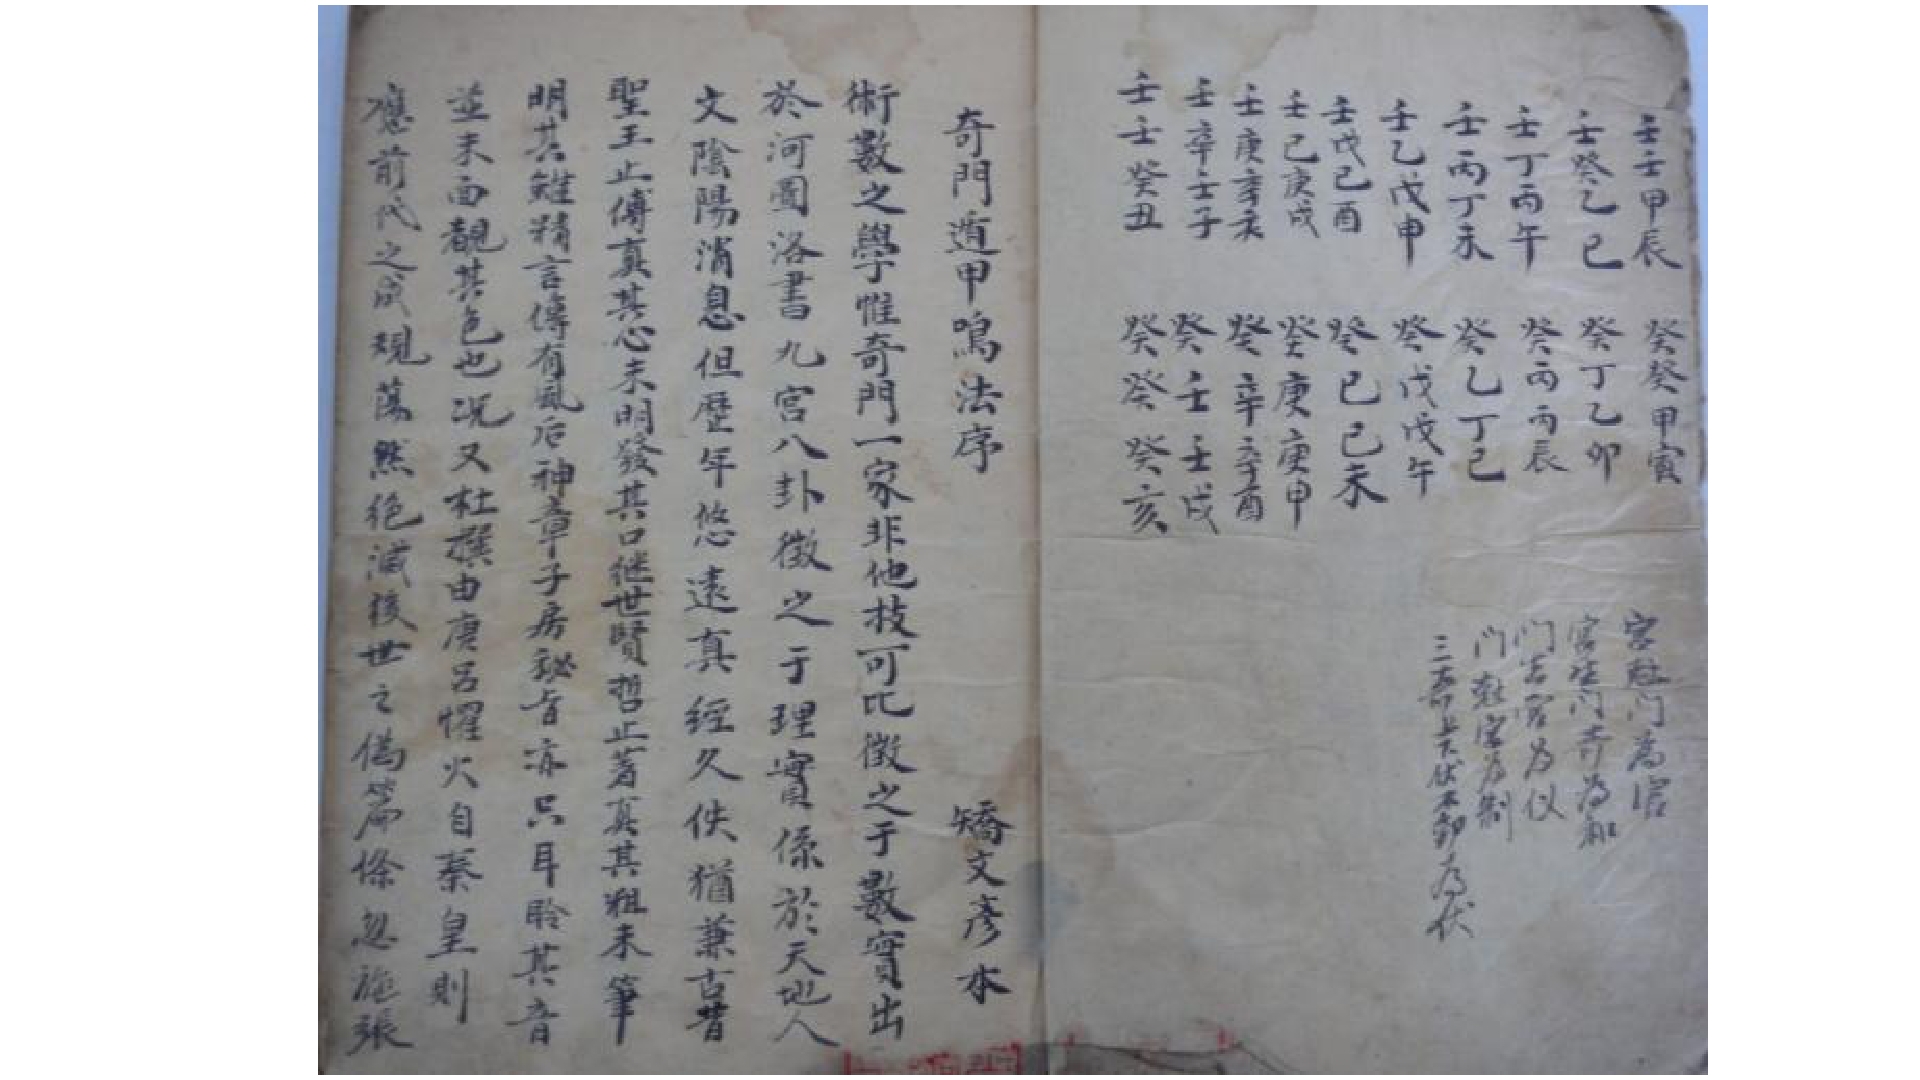 壬壬甲辰
壬癸乙巳
壬丁丙午
壬丙丁未
壬乙戊申
壬戊己酉
壬己庚戌
壬庚辛亥
壬辛壬子
壬壬癸丑
癸癸甲寅
癸丁乙卯
癸丙丙辰
癸乙丁巳
癸戊戊午
癸己己未
癸庚庚申
癸辛辛酉
癸壬壬戌
癸癸癸亥
门为
门奇为和
门吉宮为仪
门尅宮为制
三奇上下伏不動为伏
奇門遁甲鳴法序
矯文彥本
術數之學惟奇門一家非他技可比徵之于數實出
於河圖洛書九宮八卦徵之于理實係於天地人
文陰陽消息但歷年悠遠真經久佚猶兼古昔
聖王止傳真其心未明發其口继世賢哲止著真其粗未筆
明其雖精言傳有風后神章子房秘旨亦只耳聆其音
並未面覩其色也况又杜撰由唐呂懼火自秦皇則
應前代之成規蕩然绝滅後世之偽篇倏忽施張